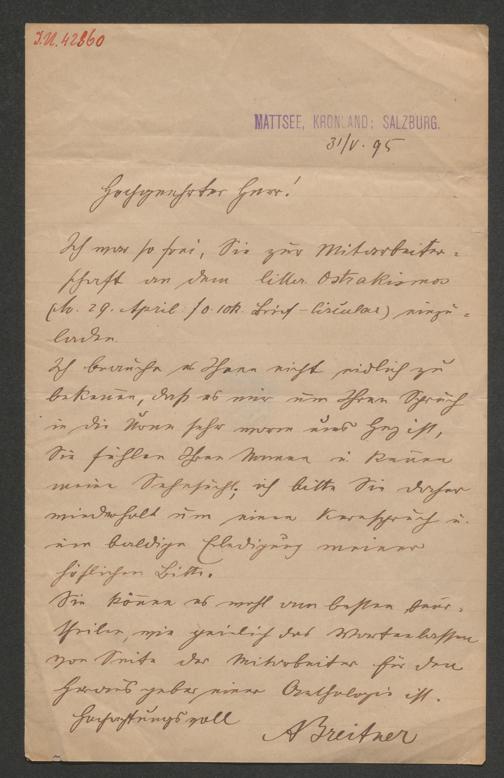 I.N. 42860
MATTSEE, KRONLAND: SALZBURG.
31/V. 95
Hochgeehrter Herr!
Ich war so frei, Sie zur Mitarbeiter-
schaft an dem litter. Ostrakismos
29. April Brief-Circular) einzu-
laden.
Ich brauche es Ihnen nicht eidlich zu
bekennen, daß es mir um Ihren Spruch
in die Urne sehr warm ums Herz ist,
Sie fühlen Ihren Namen u. kennen
meine Sehnsucht; ich bitte Sie daher
wiederholt um einen Kernspruch u.
um baldige Erledigung meiner
höflichen Bitte.
Sie können es wohl am besten beur-
theilen, wie peinlich das Wartenlassen
von Seite der Mitarbeiter für den
Herausgeber einer Anthologie ist.
Hochachtungsvoll
ABreitner